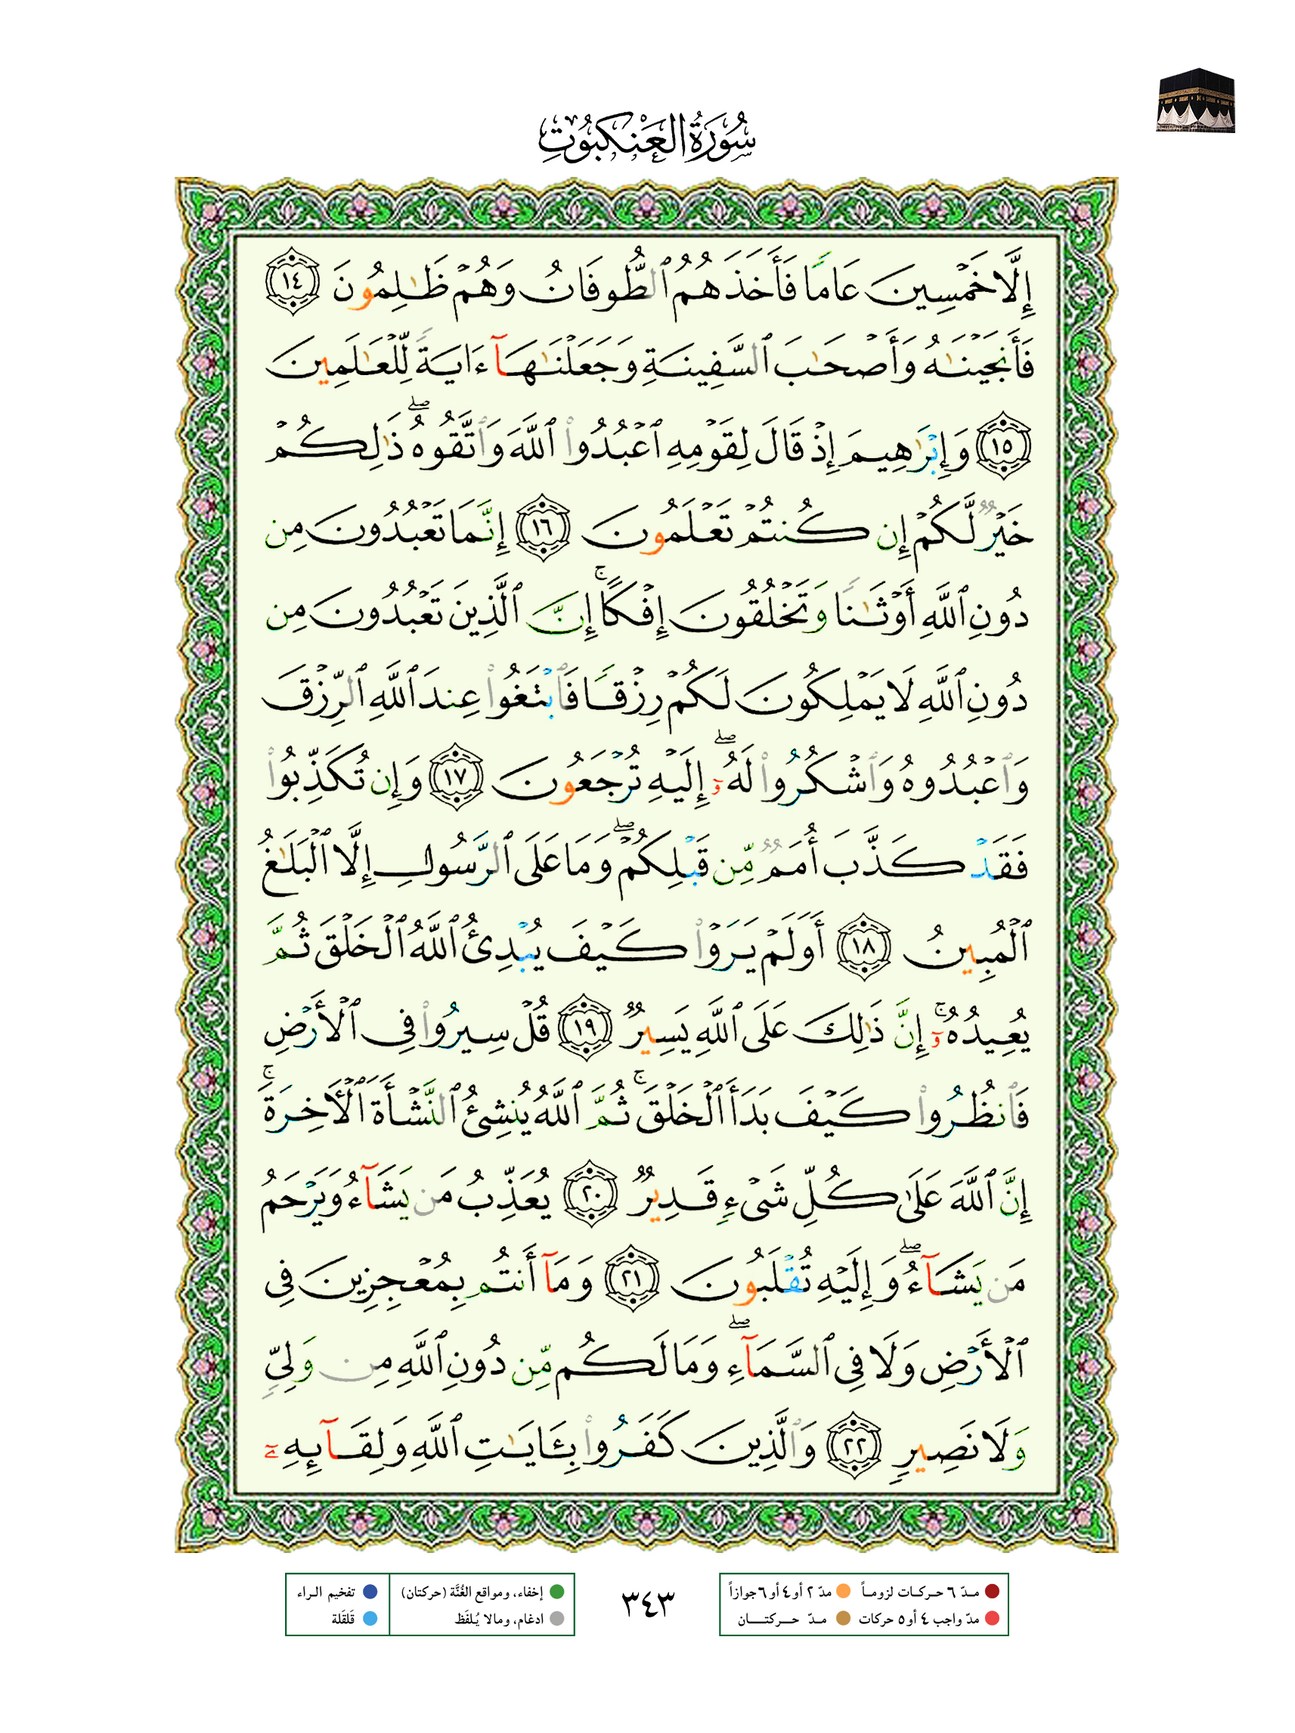 سُورَةُ الْعَنْكَبُوتِ
إِلَّا خَمْسِينَ عَامًا فَأَخَذَهُمُ ٱلطُّوفَانُ وَهُمْ ظَـٰلِمُونَ ١٤
فَأَنجَيْنَـٰهُ وَأَصْحَـٰبَ ٱلسَّفِينَةِ وَجَعَلْنَـٰهَآ ءَايَةً لِّلْعَـٰلَمِينَ
١٥ وَإِبْرَٰهِيمَ إِذْ قَالَ لِقَوْمِهِ ٱعْبُدُوا۟ ٱللَّهَ وَٱتَّقُوهُ ۖ ذَٰلِكُمْ
خَيْرٌ لَّكُمْ إِن كُنتُمْ تَعْلَمُونَ ١٦ إِنَّمَا تَعْبُدُونَ مِن
دُونِ ٱللَّهِ أَوْثَـٰنًا وَتَخْلُقُونَ إِفْكًا ۚ إِنَّ ٱلَّذِينَ تَعْبُدُونَ مِن
دُونِ ٱللَّهِ لَا يَمْلِكُونَ لَكُمْ رِزْقًا فَٱبْتَغُوا۟ عِندَ ٱللَّهِ ٱلرِّزْقَ
وَٱعْبُدُوهُ وَٱشْكُرُوا۟ لَهُۥٓ ۖ إِلَيْهِ تُرْجَعُونَ ١٧ وَإِن تُكَذِّبُوا۟
فَقَدْ كَذَّبَ أُمَمٌ مِّن قَبْلِكُمْ ۖ وَمَا عَلَى ٱلرَّسُولِ إِلَّا ٱلْبَلَـٰغُ
ٱلْمُبِينُ ١٨ أَوَلَمْ يَرَوْا۟ كَيْفَ يُبْدِئُ ٱللَّهُ ٱلْخَلْقَ ثُمَّ
يُعِيدُهُۥٓ ۚ إِنَّ ذَٰلِكَ عَلَى ٱللَّهِ يَسِيرٌ ١٩ قُلْ سِيرُوا۟ فِى ٱلْأَرْضِ
فَٱنظُرُوا۟ كَيْفَ بَدَأَ ٱلْخَلْقَ ۚ ثُمَّ ٱللَّهُ يُنشِئُ ٱلنَّشْأَةَ ٱلْـَٔاخِرَةَ ۚ
إِنَّ ٱللَّهَ عَلَىٰ كُلِّ شَىْءٍ قَدِيرٌ ٢٠ يُعَذِّبُ مَن يَشَآءُ وَيَرْحَمُ
مَن يَشَآءُ ۖ وَإِلَيْهِ تُقْلَبُونَ ٢١ وَمَآ أَنتُم بِمُعْجِزِينَ فِى
ٱلْأَرْضِ وَلَا فِى ٱلسَّمَآءِ ۖ وَمَا لَكُم مِّن دُونِ ٱللَّهِ مِن وَلِىٍّ
وَلَا نَصِيرٍ ٢٢ وَٱلَّذِينَ كَفَرُوا۟ بِـَٔايَـٰتِ ٱللَّهِ وَلِقَآئِهِۦٓ
مدّ ٦ حركات لزوماً مدّ ٢ أو ٤ أو ٦ جوازاً
مدّ واجب ٤ أو ٥ حركات مدّ حركتان
٣٤٣
إخفاء، ومواقع الغُنَّة (حركتان) تفخيم الراء
ادغام، ومالا يُلفَظ قَلقَلة